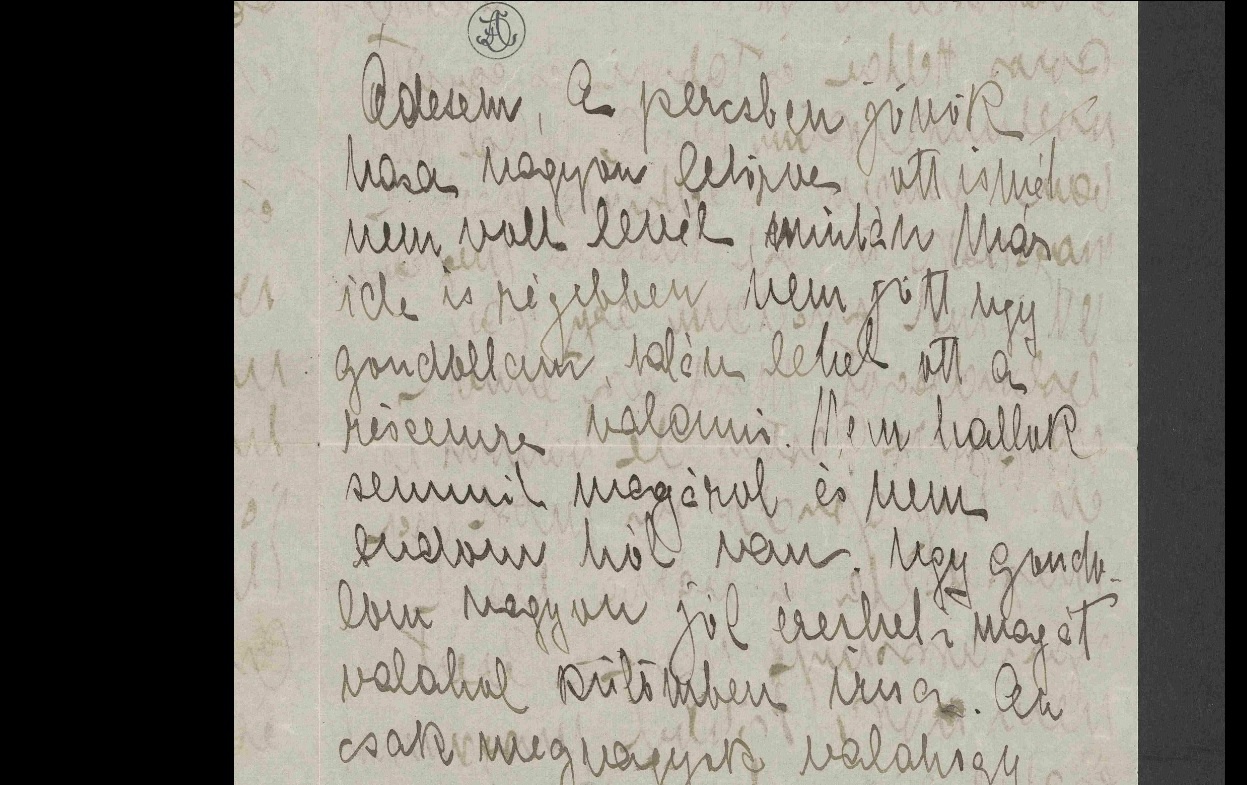 Édesem, E percsben jövök
hasa nagyon letörve, ott ismét
nem volt levél, miután más
ide is régebben nem jött ugy
gondoltam, talán lehet ott a
részemre valami. Nem hallok
semmit magárol és nem
tudom hol van. Ugy gondo-
lom nagyon jól érezheti magát
valahol külömben irna. Én
csak megvagyok valahogy